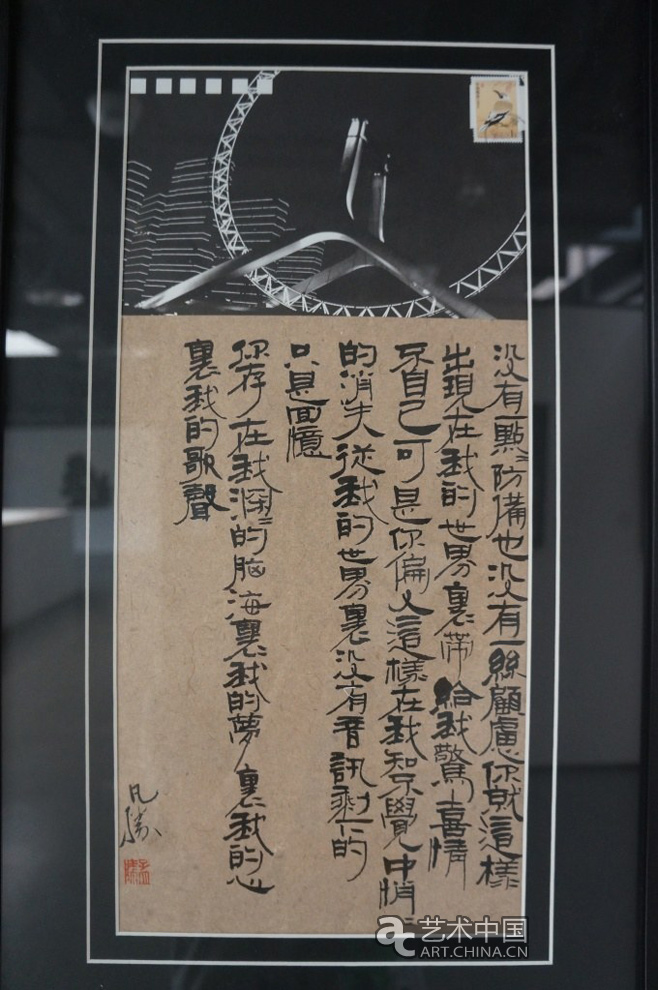 没有一點〻防備也没有一絲顧慮你就這樣
出現在我的世界裏帶給我驚喜情
不自己可是你偏又這樣在我知不覺中悄〻
的消失從我的世界裏没有音訊剩下的
只是回憶
你存在我深〻的脑海裏我的夢裏我的心
裏我的歌聲
艺术中国
ART.CHINA.CN